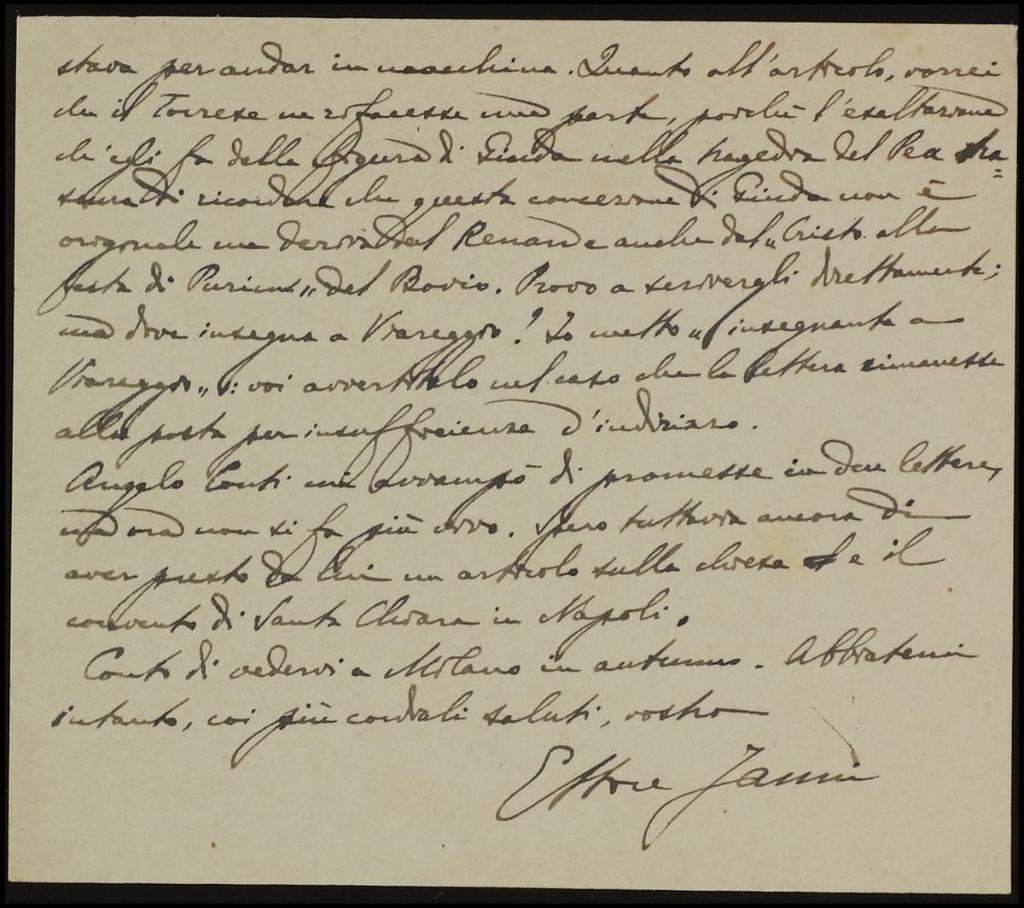 stava per andar in macchina. Quanto all'articolo, vorrei
che il Torrese ne rifacesse una parte, poichè l'esaltazione
ch'egli fa della figura di Giuda nella tragedia del Pea tra=
scura di ricordare che questa concezione di Giuda non è
originale ma deriva dal Renan e anche dal „Cristo alla
festa di Purim„ del Bovio. Provo a scrivergli direttamente;
ma dove insegna a Viareggio? Io metto „insegnante a
Viareggio„: voi avvertitelo nel caso che la lettera rimanesse
alla posta per insufficienza d'indirizzo.
Angelo Conti mi avvampò di promesse in due lettere,
ma ora non si fa più vivo. Spero tuttavia ancora di
aver presto da lui un articolo sulla chiesa e il
convento di Santa Chiara in Napoli.
Conto di vedervi a Milano in autunno. Abbiatemi
intanto, coi più cordiali saluti, vostro
Ettore Janni